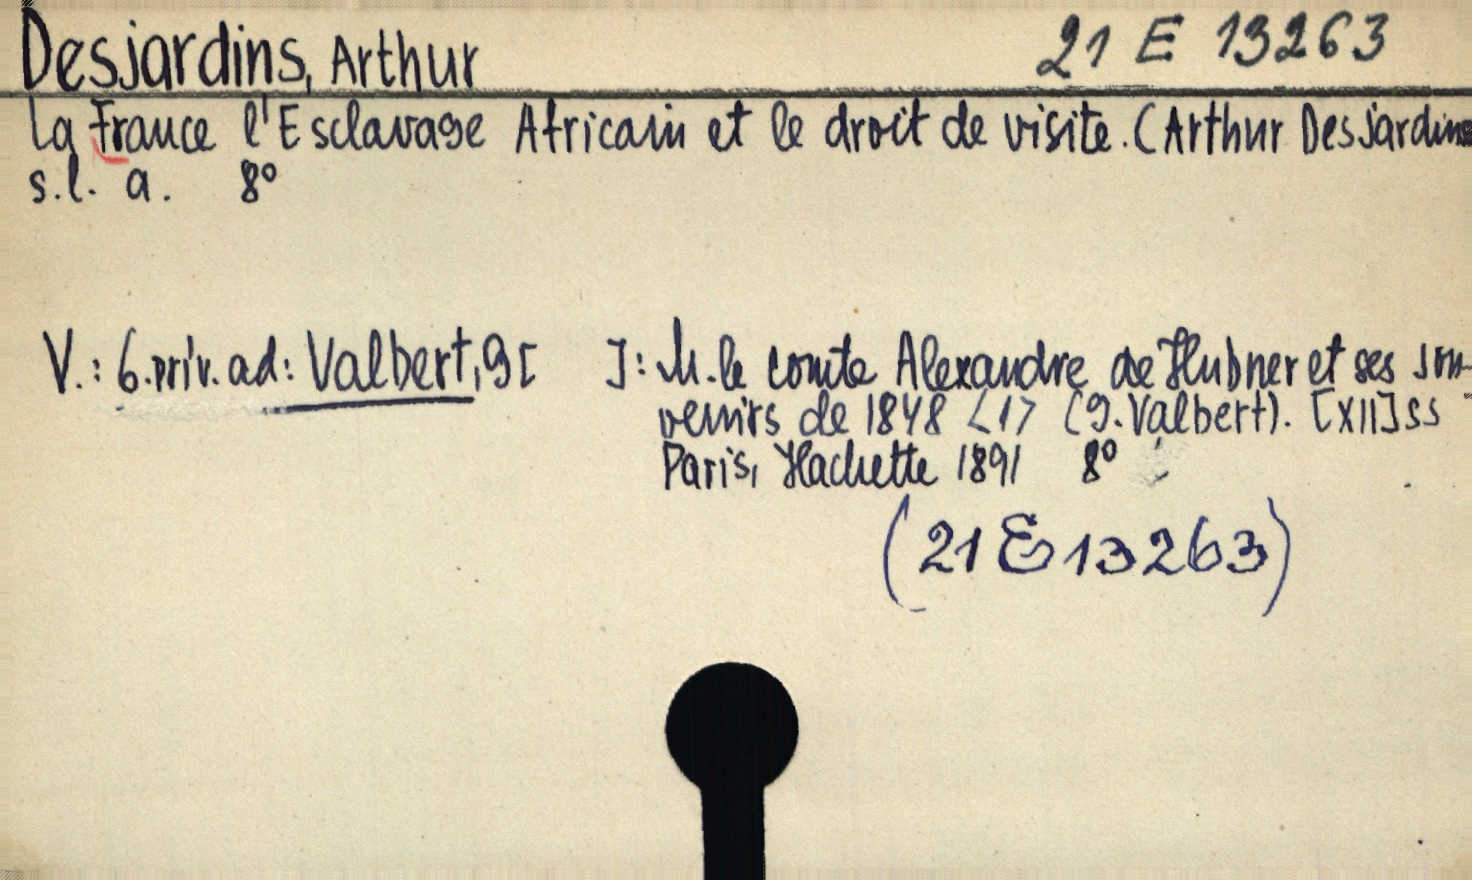 Desjardins, Arthur 21 E 13263
La France l'Esclavage Africain et le droit de visite. (Arthur Desjardins
s.l. a. 8°
V.: 6. priv. ad: Valbert, G[ ]: M. le comte Alexandre de Hubner et ses sou-
venirs de 1848 <1> (G. Valbert). [XII] SS
Paris, Hachette 1891 8°
(21 E 13263)